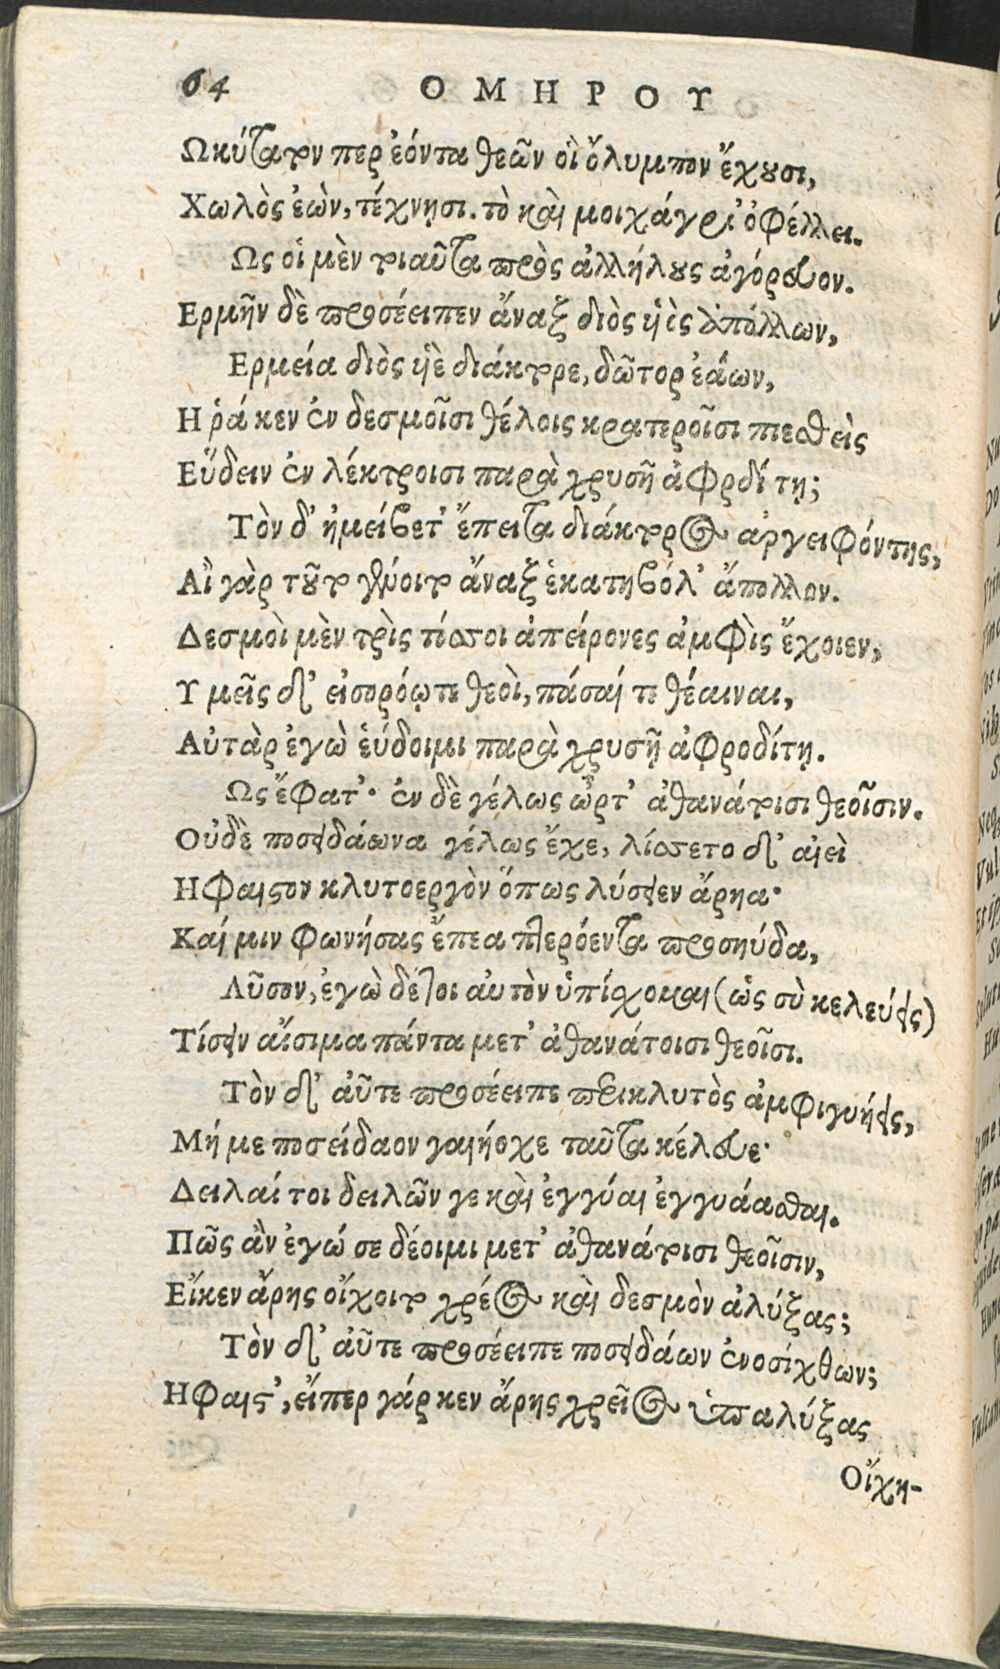 64 ΟΜΗΡΟΥ
Ωκύτατόν περ ἐόντα θεῶν οἳ ὄλυμπον ἔχουσι,
Χωλὸς ἐὼν, τέχνῃσι. τὸ καὶ μοιχάγρι' ὀφέλλει.
Ως οἱ μὲν τοιαῦτα πρὸς ἀλλήλους ἀγόρευον.
Ερμῆν δὲ προσέειπεν ἄναξ διὸς ὑιὸς ἀπόλλων,
Ερμεία διὸς ὑιὲ διάκτορε, δῶτορ ἐάων,
Η ῥά κεν ἐν δεσμοῖσι θέλοις κρατεροῖσι πιεσθεὶς
Εὕδειν ἐν λέκτροισι παρὰ χρυσῆ ἀφροδίτῃ;
Τὸν δ' ἠμείβετ' ἔπειτα διάκτορος ἀργειφόντης,
Αἲ γὰρ τοῦτο γένοιτο ἄναξ ἑκατηβόλ' ἄπολλον.
Δεσμοὶ μὲν τρὶς τόσσοι ἀπείρονες ἀμφὶς ἔχοιεν,
Υμεῖς δ' εἰσορόῳτε θεοὶ, πάσαί τε θέαιναι,
Αὐτὰρ ἐγὼ ἑύδοιμι παρὰ χρυσῇ ἀφροδίτῃ.
Ως ἔφατ'· ἐν δὲ γέλως ὦρτ' ἀθανάτοισι θεοῖσιν.
Οὐδὲ ποσειδάωνα γέλως ἔχε, λίσσετο δ' αἰεὶ
Ηφαιστον κλυτοεργὸν ὅπως λύσειεν ἄρηα·
Καί μιν φωνήσας ἔπεα πτερόεντα προσηύδα,
Λῦσον, ἐγὼ δέ τοι ἀυτὸν ὑπίσχομαι (ὡς σὺ κελεύεις)
Τίσειν αἴσιμα πάντα μετ' ἀθανάτοισι θεοῖσι.
Τὸν δ' ἀῦτε προσέειπε περικλυτὸς ἀμφιγυήεις,
Μή με ποσείδαον γαιήοχε ταῦτα κέλευε·
Δειλαί τοι δειλῶν γε καὶ ἐγγύαι ἐγγυάασθαι.
Πῶς ἂν ἐγώ σε δέοιμι μετ' ἀθανάτοισι θεοῖσιν,
Εἴκεν ἄρης οἴχοιτο χρέος καὶ δεσμὸν ἀλύξας;
Τὸν δ' ἀῦτε προσέειπε ποσειδάων ἐνοσίχθων;
Ηφαιστ', εἴπερ γάρ κεν ἄρης χρεῖος ὑπαλύξας
Οἴχη-